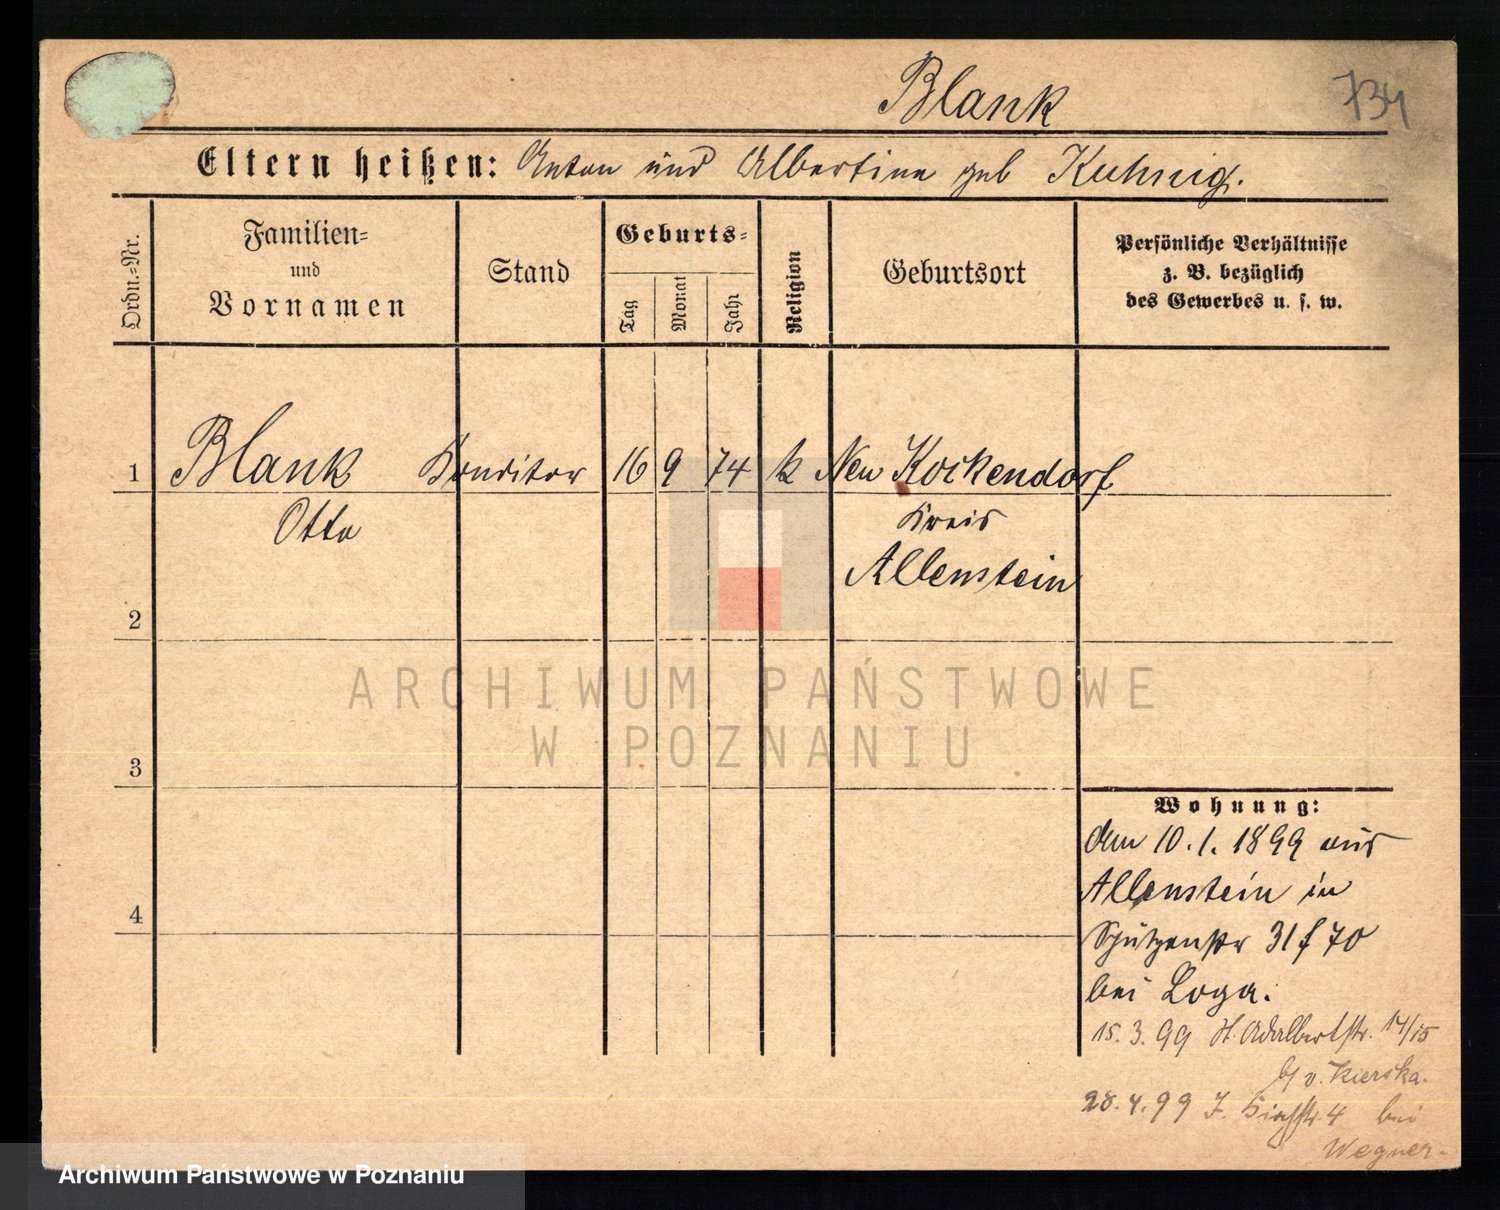 Blank 734
Eltern heißen: Anton und Albertine geb Kuhnig.
Ordn.=Nr. Familien= und Vornamen Stand Geburts= Tag Monat Jahr Religion Geburtsort Persönliche Verhältnisse z. B. bezüglich des Gewerbes u. s. w.
1 Blank Konditor 16 9 74 k Neu Kockendorf
Otto Kreis
Allenstein
2
ARCHIWUM PAŃSTWOWE
W POZNANIU
3
Wohnung:
den 10.1.1899 aus
Allenstein in
4
Schützenstr 31 f 70
bei Loga.
15.3.99 St. Adalbertstr. 14/15
b/ v. Kierska.
28.4.99 4 bei
Wegner
Archiwum Państwowe w Poznaniu